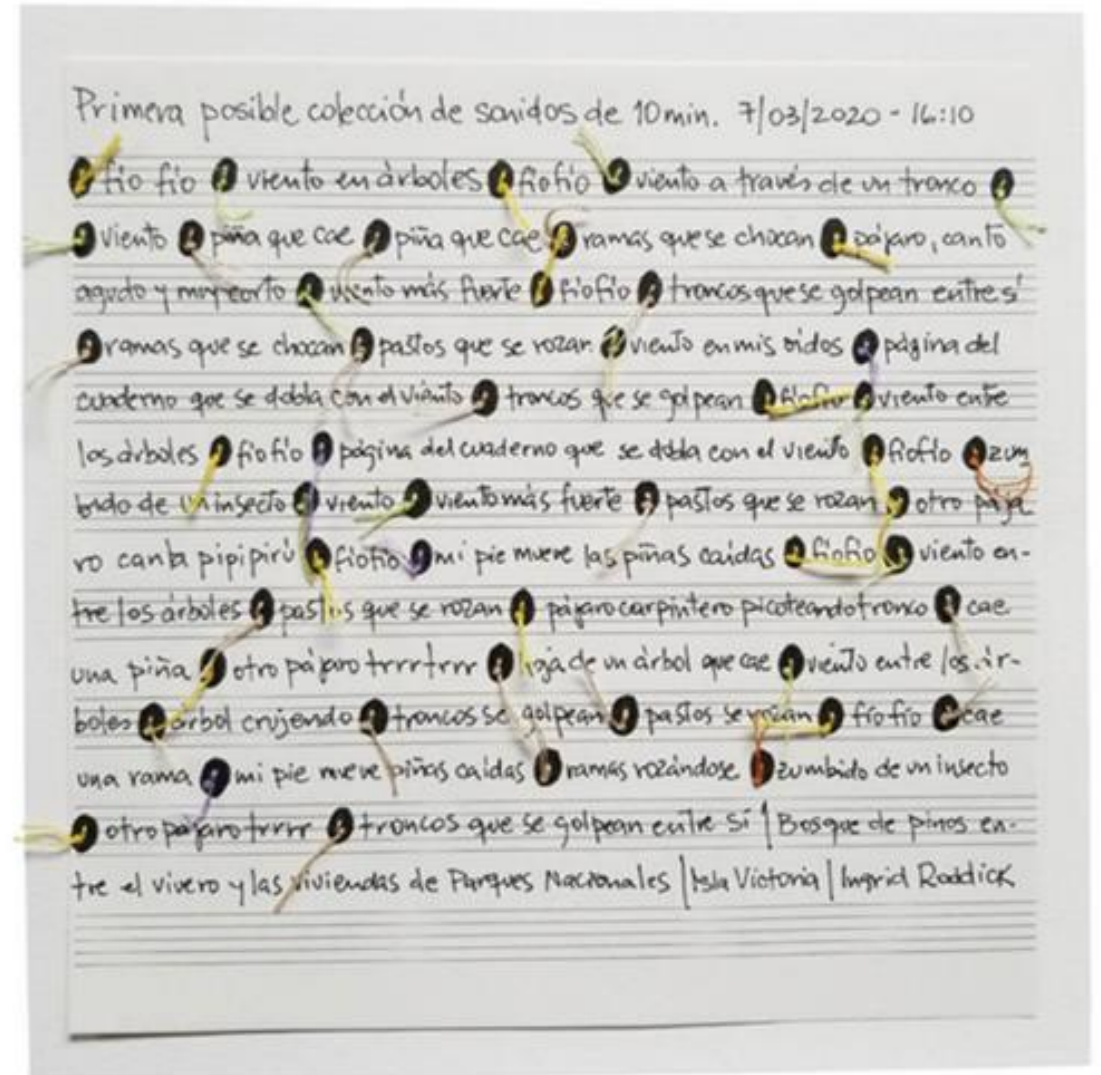 Primera posible colección de sonidos de 10min. 7/03/2020 - 16:10
fío fío viento en árboles fiofío viento a través de un tronco
viento piña que cae piña que cae ramas que se chocan pájaro, canto
agudo y muy corto viento más fuerte fiofío troncos que se golpean entre sí
ramas que se chocan pastos que se rozan viento en mis oídos página del
cuaderno que se dobla con el viento troncos que se golpean fiofío viento entre
los árboles fiofío página del cuaderno que se dobla con el viento fiofío zum
bido de un insecto viento viento más fuerte pastos que se rozan otro pája
ro canta pipipirú fiofío mi pie mueve las piñas caídas fiofío viento en-
tre los árboles pastos que se rozan pájaro carpintero picoteando tronco cae
una piña otro pájaro trrrtrrr hoja de un árbol que cae viento entre los ár-
boles árbol crujendo troncos se golpean pastos se rozan fío fío cae
una rama mi pie mueve piñas caídas ramas rozándose zumbido de un insecto
otro pájaro trrrr troncos que se golpean entre sí | Bosque de pinos en-
tre el vivero y las viviendas de Parques Nacionales | Isla Victoria | Ingrid Roddick